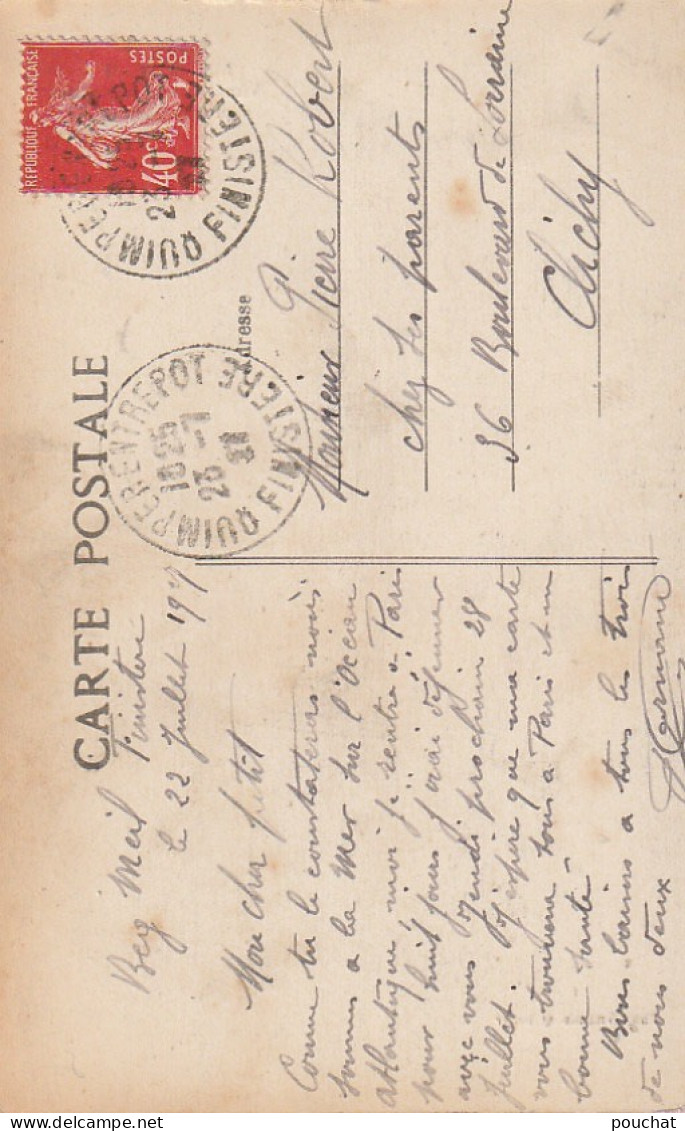 CARTE POSTALE
Beg Meil Finistère
le 22 Juillet 19
Mon cher petit
Comme tu le constateras nous
sommes à la Mer sur l'Océan
atlantique, moi je rentre à Paris
pour huit jours j'irai déjeuner
avec vous jeudi prochain 28
juillet. J'espère que ma carte
vous trouvera tous à Paris et en
bonne santé
Bons baisers à tous les trois
de nous deux
Germaine
REPUBLIQUE FRANÇAISE
POSTES
40c
QUIMPER FINISTERE
QUIMPER ENTREPOT
18 25
23 -7
FINISTERE
Adresse
Monsieur Pierre Robert
chez ses parents
86 Boulevard de Lorraine
Clichy
pouchat